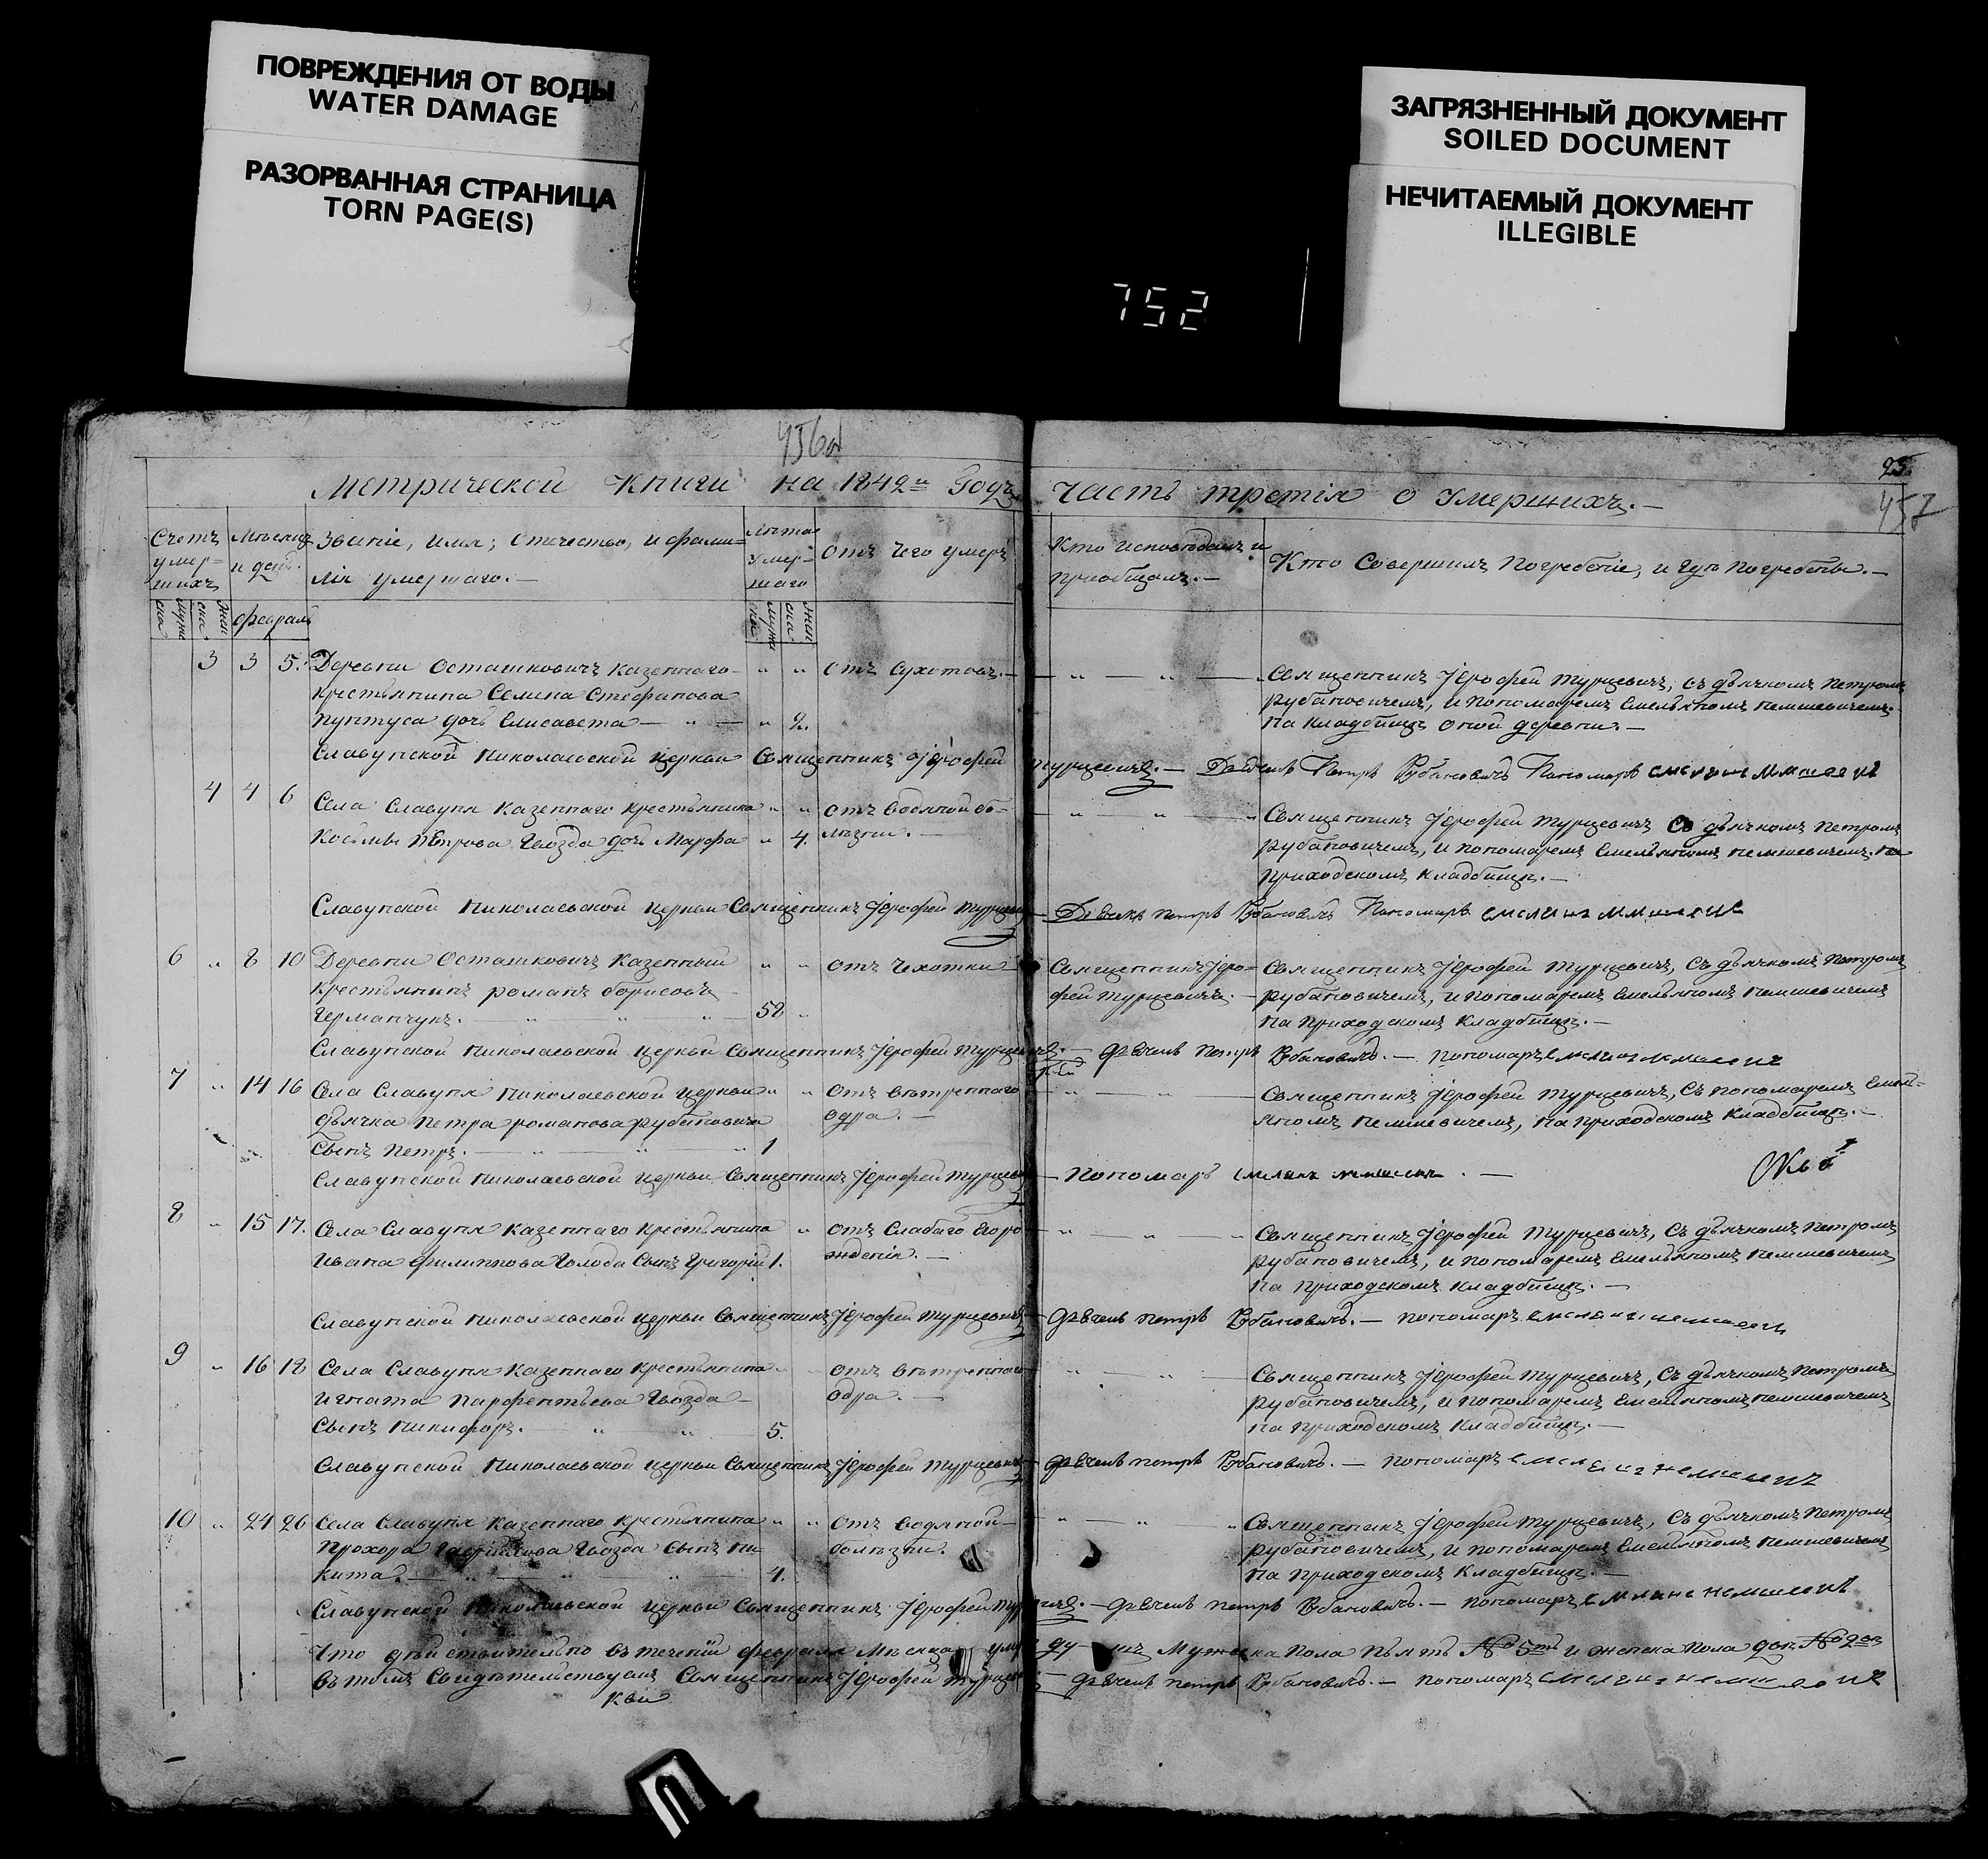 ПОВРЕЖДЕНИЯ ОТ ВОДЫ
WATER DAMAGE
РАЗОРВАННАЯ СТРАНИЦА
TORN PAGE(S)
ЗАГРЯЗНЕННЫЙ ДОКУМЕНТ
SOILED DOCUMENT
НЕЧИТАЕМЫЙ ДОКУМЕНТ
ILLEGIBLE
752
456об
Метрической Книги на 1842й Годъ
Счетъ умер=шихъ
Мѣсяцъ и день.
Званіе, имя, отечество, и фами=
лія умершаго.—
Лѣта умер=шаго
отъ чего умеръ
муже ска
жен ска.
февраль
муже ска
жен ска.
3 3 5. Деревни Осташковичъ казеннаго „ „ отъ Сухотовъ.—
крестьянина Семиона Стефанова
Пунтуса дочь Елисавета — „ — „ 2.
Славунской Николаевской церкви Священникъ Іерофей
4 4 6 Села Славуня казеннаго крестьянина „ „ отъ водяной бо=
Косьмы Петрова Гвозда дочь Марфа „ 4. лѣзни.—
Славунской Николаевской церкви Священникъ Іерофей Турцевичъ
6 „ 8 10 Деревни Осташковичъ Казенный „ „ отъ Чехотки
крестьянинъ романъ борисовъ
Германчукъ. „ „ „ 58 „
Славунской Николаевской церкви Священникъ Іерофей Турцевичъ.
7 „ 14 16 Села Славуня Николаевской церкви „ „ отъ вѣтреннаго
дьячка Петра романова рубановича одра.—
Сынъ Петръ. — „ — „ „ 1
Славунской Николаевской церкви Священникъ Іерофей Турцевичъ
8 „ 15 17. Села Славуня Казеннаго Крестьянина „ отъ Слабаго Его ро
Ивана филиппова Голода Сынъ Григорій 1. жденія.—
Славунской Николаевской церкви Священникъ Іерофей Турцевичъ
9 „ 16 18 Села Славуня Казеннаго Крестьянина „ „ отъ вѣтреннаго
Игната Парфентьева Гвозда — одра.—
Сынъ Никифоръ. — „ „ 5.
Славунской Николаевской церкви Священникъ Іерофей Турцевичъ
10 „ 24 26 Села Славуня Казеннаго крестьянина „ „ отъ водяной
Прохора Гаврилова Гвозда Сынъ Ни= болѣзни.
кита. — „ — „ „ 4.
Славунской Николаевской церкви Священникъ Іерофей
Что дѣйствительно въ теченіи февраля Мѣсяца
въ томъ Свидѣтельствуемъ Священникъ Іерофей Турцевичъ
25.
457
Часть третія о Умершихъ.—
Кто исповѣдалъ и
приобщалъ.—
Кто Совершилъ Погребеніе, и гдѣ Погребены.—
— „ — „ — Священникъ Іерофей Турцевичъ, съ дьячкомъ Петромъ
рубановичемъ, и пономаремъ Емельяномъ Немшевичемъ.
На Кладбищѣ оной деревни.—
Турцевичъ.— Дьячекъ Петръ Рубановичъ Пономарь
— „ — „ — Священникъ Іерофей Турцевичъ Съ дьячкомъ Петромъ
рубановичемъ, и пономаремъ Емельяномъ Немшевичемъ. На
Приходскомъ Кладбищѣ.—
— Дьячекъ Петръ Рубановичъ Пономарь
Священникъ Іеро=
фей Турцевичъ.—
Священникъ Іерофей Турцевичъ, Съ дьячкомъ Петромъ
рубановичемъ, и пономаремъ Емельяномъ Немшевичемъ
На Приходскомъ Кладбищѣ.—
— дьячекъ Петръ Рубановичъ.— пономарь
— „ — „ — Священникъ Іерофей Турцевичъ, Съ пономаремъ Емель=
яномъ Немшевичемъ, На Приходскомъ Кладбищѣ.—
— пономарь
— „ — „ — „ Священникъ Іерофей Турцевичъ, Съ дьячкомъ Петромъ
рубановичемъ, и пономаремъ Емельяномъ Немшевичемъ
На Приходскомъ Кладбищѣ.—
— дьячекъ петръ Рубановичъ.— пономарь
„ — „ — Священникъ Іерофей Турцевичъ, Съ дьячкомъ Петромъ
рубановичемъ, и пономаремъ Емельяномъ Немшевичемъ
На Приходскомъ Кладбищѣ.—
дьячекъ петръ Рубановичъ.— пономарь
„ — „ „ Священникъ Іерофей Турцевичъ, Съ дьячкомъ Петромъ
рубановичемъ, и пономаремъ Емельяномъ Немшевичемъ
На Приходскомъ Кладбищѣ.—
— дьячекъ петръ Рубановичъ.— пономарь
Мужеска Пола Пять № 5ть и женска Пола двѣ № 2вѣ
— дьячекъ петръ Рубановичъ.— пономарь